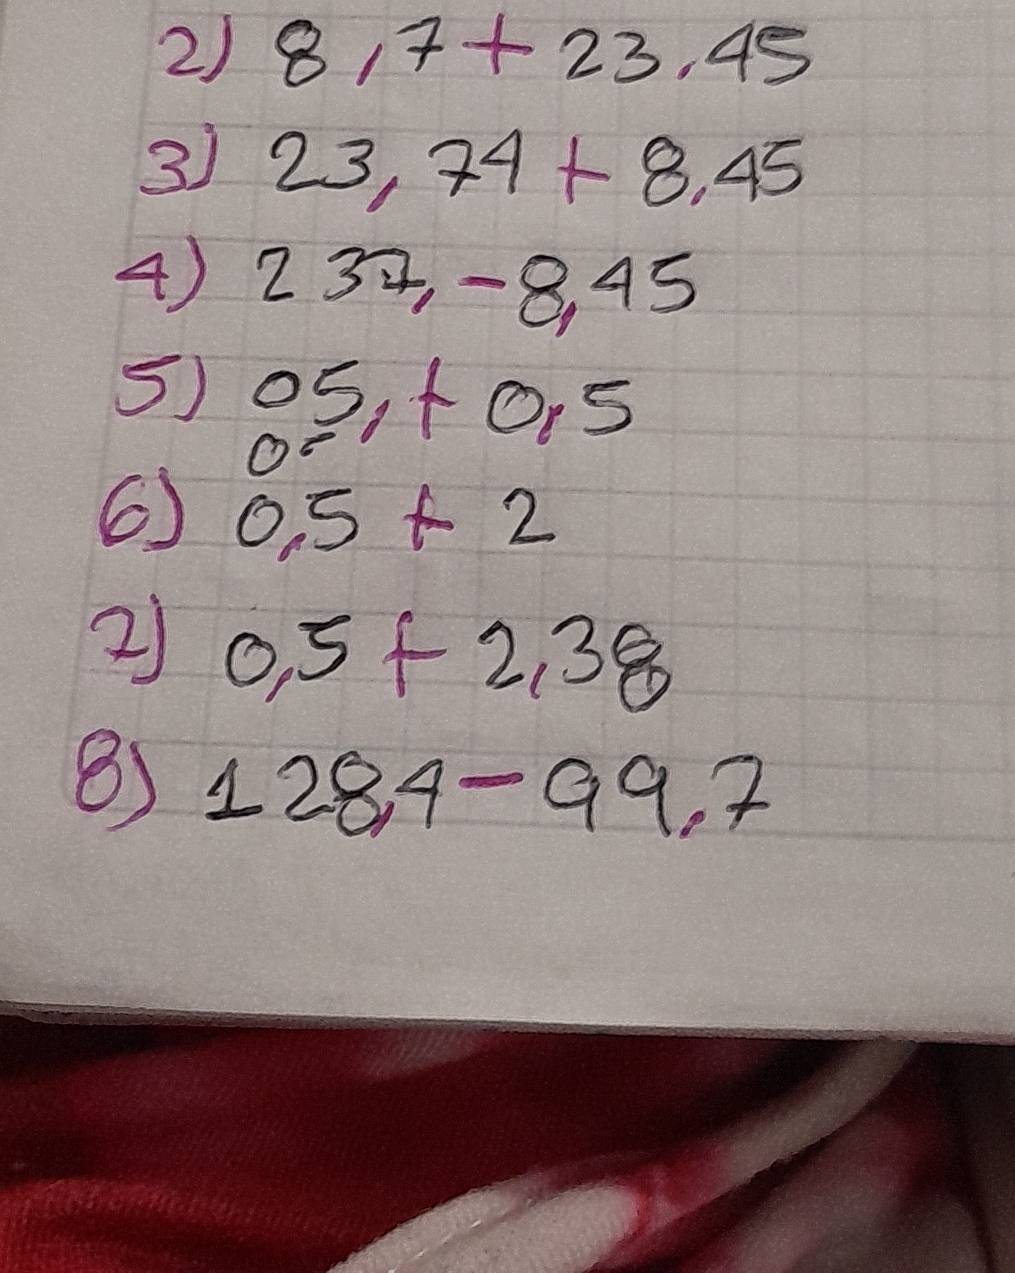 2) 8,7 + 23.45
3) 23,74 + 8,45
4) 237, - 8,45
5) 05, + 0,5
0
6) 0,5 + 2
7) 0,5 + 2,38
8) 128,4 - 99,7